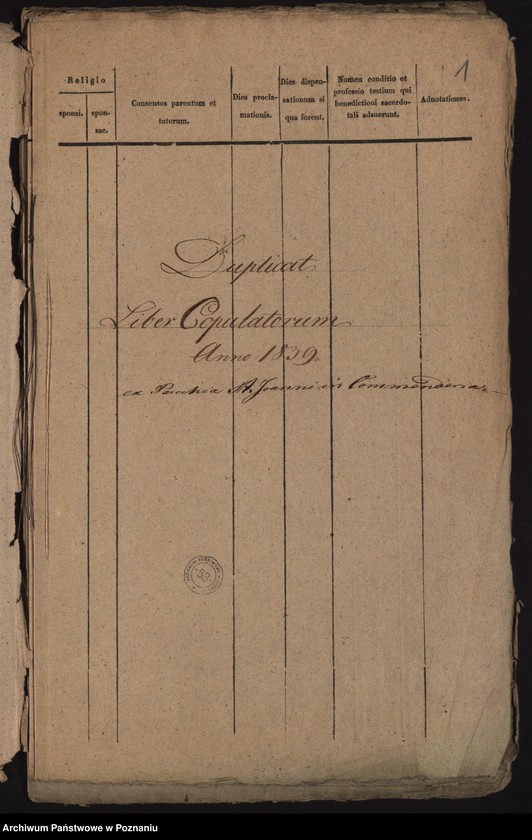 1
Religio
sponsi.
spon-
sae.
Consensus parentum et
tutorum.
Dies procla-
mationis.
Dies dispen-
sationum si
qua forent.
Nomen conditio et
professio testium qui
benedictioni sacerdo-
tali adsuerunt.
Adnotationes.
Duplicat
Liber Copulatorum
Anno 1839.
ex Parochia St. Joanni in Commenderia
Archiwum Państwowe w Poznaniu